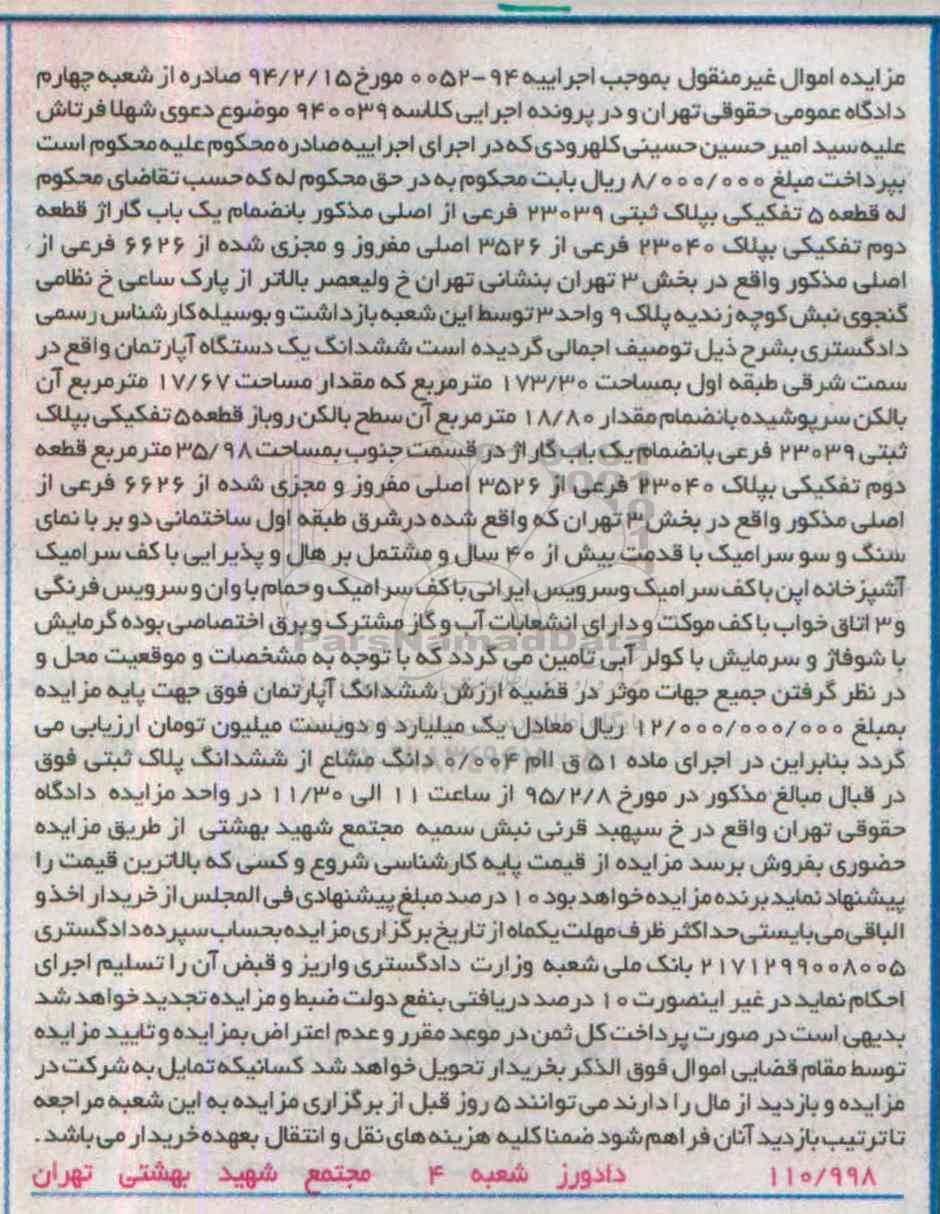 مزایده اموال غیرمنقول بموجب اجراییه ۹۴-۰۰۵۲ مورخ ۹۴/۲/۱۵ صادره از شعبه چهارم
دادگاه عمومی حقوقی تهران و در پرونده اجرایی کلاسه ۹۴۰۰۳۹ موضوع دعوی شهلا فرتاش
علیه سید امیر حسین حسینی کلهرودی که در اجرای اجراییه صادره محکوم علیه محکوم است
بپرداخت مبلغ ۸/۰۰۰/۰۰۰ ریال بابت محکوم به در حق محکوم له که حسب تقاضای محکوم
له قطعه ۵ تفکیکی بپلاک ثبتی ۲۳۰۳۹ فرعی از اصلی مذکور بانضمام یک باب گاراژ قطعه
دوم تفکیکی بپلاک ۲۳۰۴۰ فرعی از ۳۵۲۶ اصلی مفروز و مجزی شده از ۶۶۲۶ فرعی از
اصلی مذکور واقع در بخش ۳ تهران بنشانی تهران خ ولیعصر بالاتر از پارک ساعی خ نظامی
گنجوی نبش کوچه زندیه پلاک ۹ واحد ۳ توسط این شعبه بازداشت و بوسیله کارشناس رسمی
دادگستری بشرح ذیل توصیف اجمالی گردیده است ششدانگ یک دستگاه آپارتمان واقع در
سمت شرقی طبقه اول بمساحت ۱۷۳/۳۰ مترمربع که مقدار مساحت ۱۷/۶۷ مترمربع آن
بالکن سرپوشیده بانضمام مقدار ۱۸/۸۰ مترمربع آن سطح بالکن روباز قطعه ۵ تفکیکی بپلاک
ثبتی ۲۳۰۳۹ فرعی بانضمام یک باب گاراژ در قسمت جنوب بمساحت ۳۵/۹۸ مترمربع قطعه
دوم تفکیکی بپلاک ۲۳۰۴۰ فرعی از ۳۵۲۶ اصلی مفروز و مجزی شده از ۶۶۲۶ فرعی از
اصلی مذکور واقع در بخش ۳ تهران که واقع شده درشرق طبقه اول ساختمانی دو بر با نمای
سنگ و سو سرامیک با قدمت بیش از ۴۰ سال و مشتمل بر هال و پذیرایی با کف سرامیک
آشپزخانه اپن باکف سرامیک وسرویس ایرانی باکف سرامیک و حمام با وان و سرویس فرنگی
و ۳ اتاق خواب با کف موکت و دارای انشعابات آب و گاز مشترک و برق اختصاصی بوده گرمایش
با شوفاژ و سرمایش با کولر آبی تامین می گردد که با توجه به مشخصات و موقعیت محل و
در نظر گرفتن جمیع جهات موثر در قضیه ارزش ششدانگ آپارتمان فوق جهت پایه مزایده
بمبلغ ۱۲/۰۰۰/۰۰۰/۰۰۰ ریال معادل یک میلیارد و دویست میلیون تومان ارزیابی می
گردد بنابراین در اجرای ماده ۵۱ ق اام ۰/۰۰۴ دانگ مشاع از ششدانگ پلاک ثبتی فوق
در قبال مبالغ مذکور در مورخ ۹۵/۲/۸ از ساعت ۱۱ الی ۱۱/۳۰ در واحد مزایده دادگاه
حقوقی تهران واقع در خ سپهبد قرنی نبش سمیه مجتمع شهید بهشتی از طریق مزایده
حضوری بفروش برسد مزایده از قیمت پایه کارشناسی شروع و کسی که بالاترین قیمت را
پیشنهاد نماید برنده مزایده خواهد بود ۱۰ درصد مبلغ پیشنهادی فی المجلس از خریدار اخذ و
الباقی می بایستی حداکثر ظرف مهلت یکماه از تاریخ برگزاری مزایده بحساب سپرده دادگستری
۲۱۷۱۲۹۹۰۰۸۰۰۵ بانک ملی شعبه وزارت دادگستری واریز و قبض آن را تسلیم اجرای
احکام نماید در غیر اینصورت ۱۰ درصد دریافتی بنفع دولت ضبط و مزایده تجدید خواهد شد
بدیهی است در صورت پرداخت کل ثمن در موعد مقرر و عدم اعتراض بمزایده و تایید مزایده
توسط مقام قضایی اموال فوق الذکر بخریدار تحویل خواهد شد کسانیکه تمایل به شرکت در
مزایده و بازدید از مال را دارند می توانند ۵ روز قبل از برگزاری مزایده به این شعبه مراجعه
تا ترتیب بازدید آنان فراهم شود ضمنا کلیه هزینه های نقل و انتقال بعهده خریدار می باشد.
۱۱۰/۹۹۸ دادورز شعبه ۴ مجتمع شهید بهشتی تهران
ParsNamadData